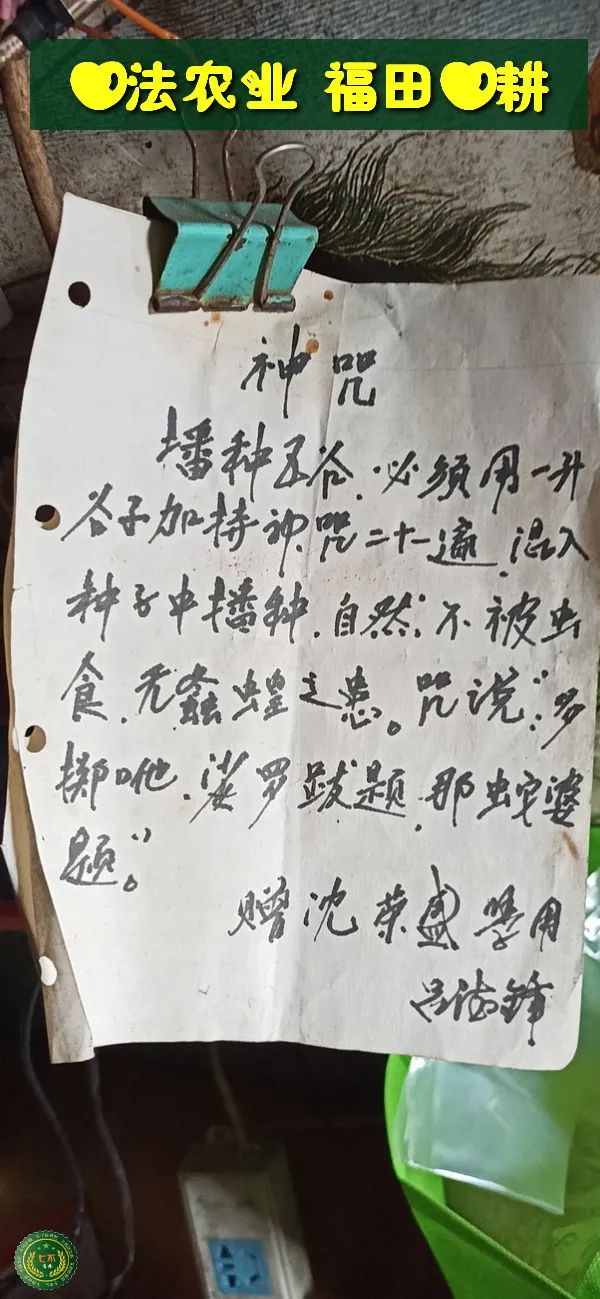 法农业 福田 耕
神咒
播种五谷.必须用一升
谷子加持神咒二十一遍.混入
种子中播种.自然不被虫
食.无螽蝗之患。咒说:“多
掷哋.娑罗跋题.那蛇婆
题”。
赠沈荣盛学用